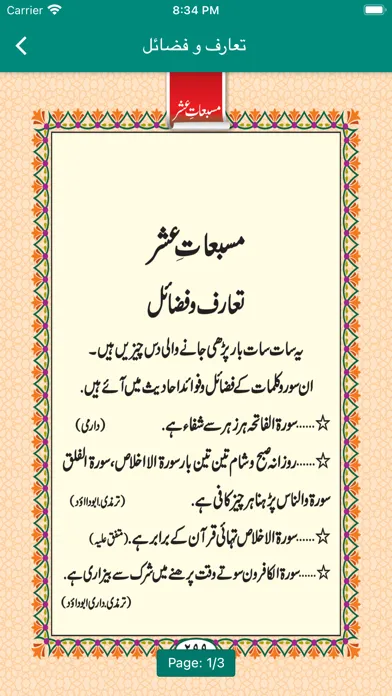 Carrier 8:34 PM
تعارف و فضائل
مسبعاتِ عشر
مسبعاتِ عشر
تعارف و فضائل
یہ سات سات بار پڑھی جانے والی دس چیزیں ہیں۔
ان سور و کلمات کے فضائل و فوائد احادیث میں آئے ہیں.
☆......سورۃ الفاتحہ ہر زہر سے شفاء ہے. (دارمی)
☆......روزانہ صبح و شام تین تین بار سورۃ الاخلاص، سورۃ الفلق
سورۃ والناس پڑھنا ہر چیز کافی ہے. (ترمذی، ابوداؤد)
☆......سورۃ الاخلاص تہائی قرآن کے برابر ہے. (متفق علیہ)
☆......سورۃ الکافرون سوتے وقت پرھنے میں شرک سے بیزاری ہے.
(ترمذی، داری، ابوداؤد)
۲۹۹
Page: 1/3